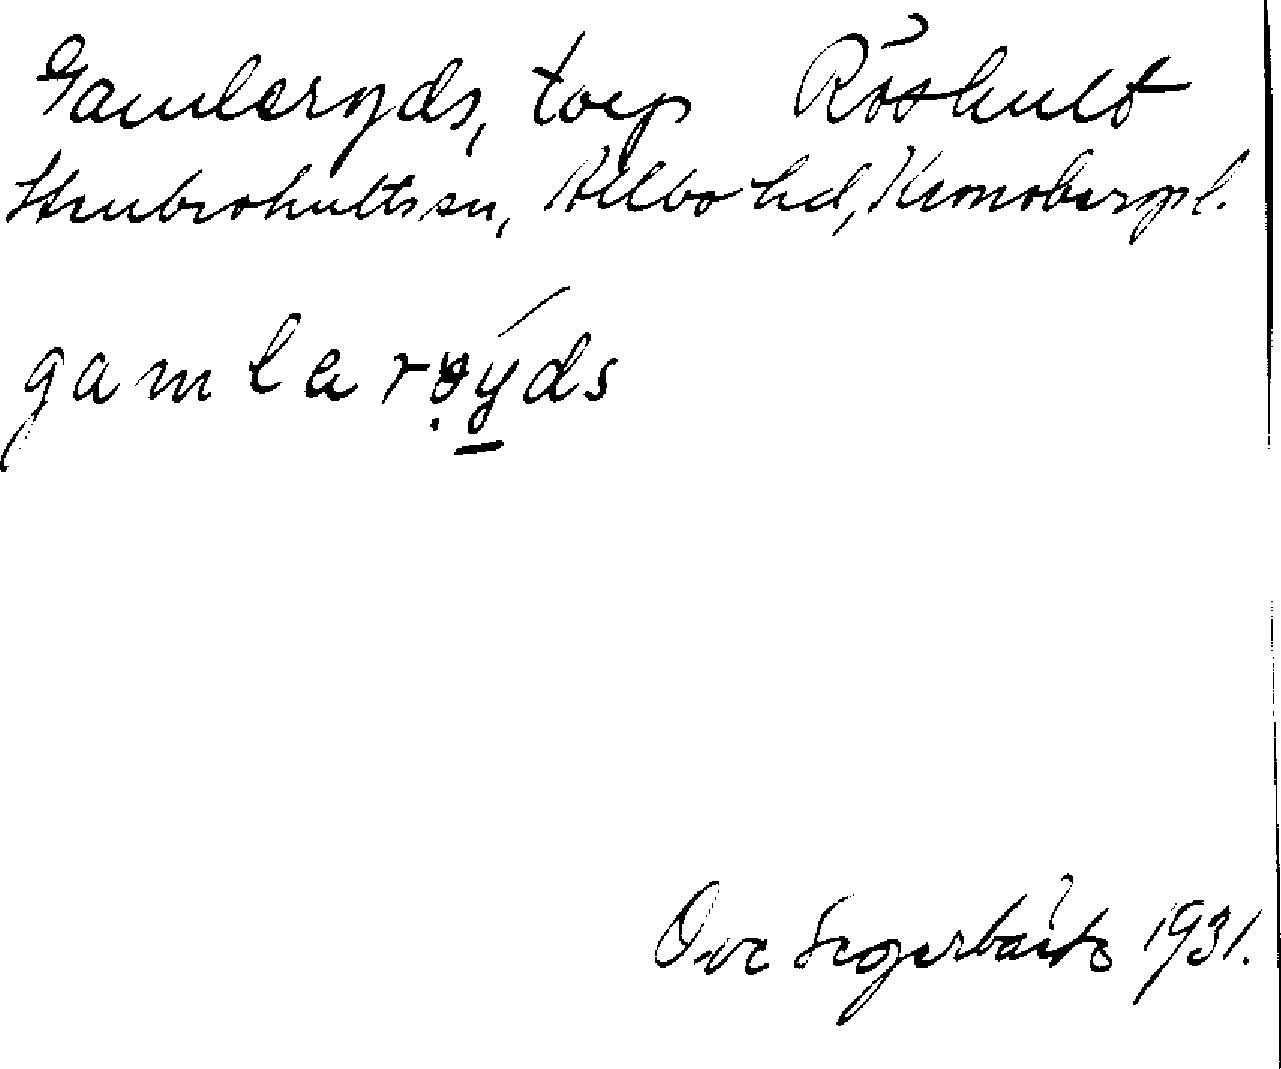 Gamleryds, torp Råshult
Stenbrohults sn, Allbo hd, Kronobergs l.
gamlarøýds
Ove Segerbäck 1931.